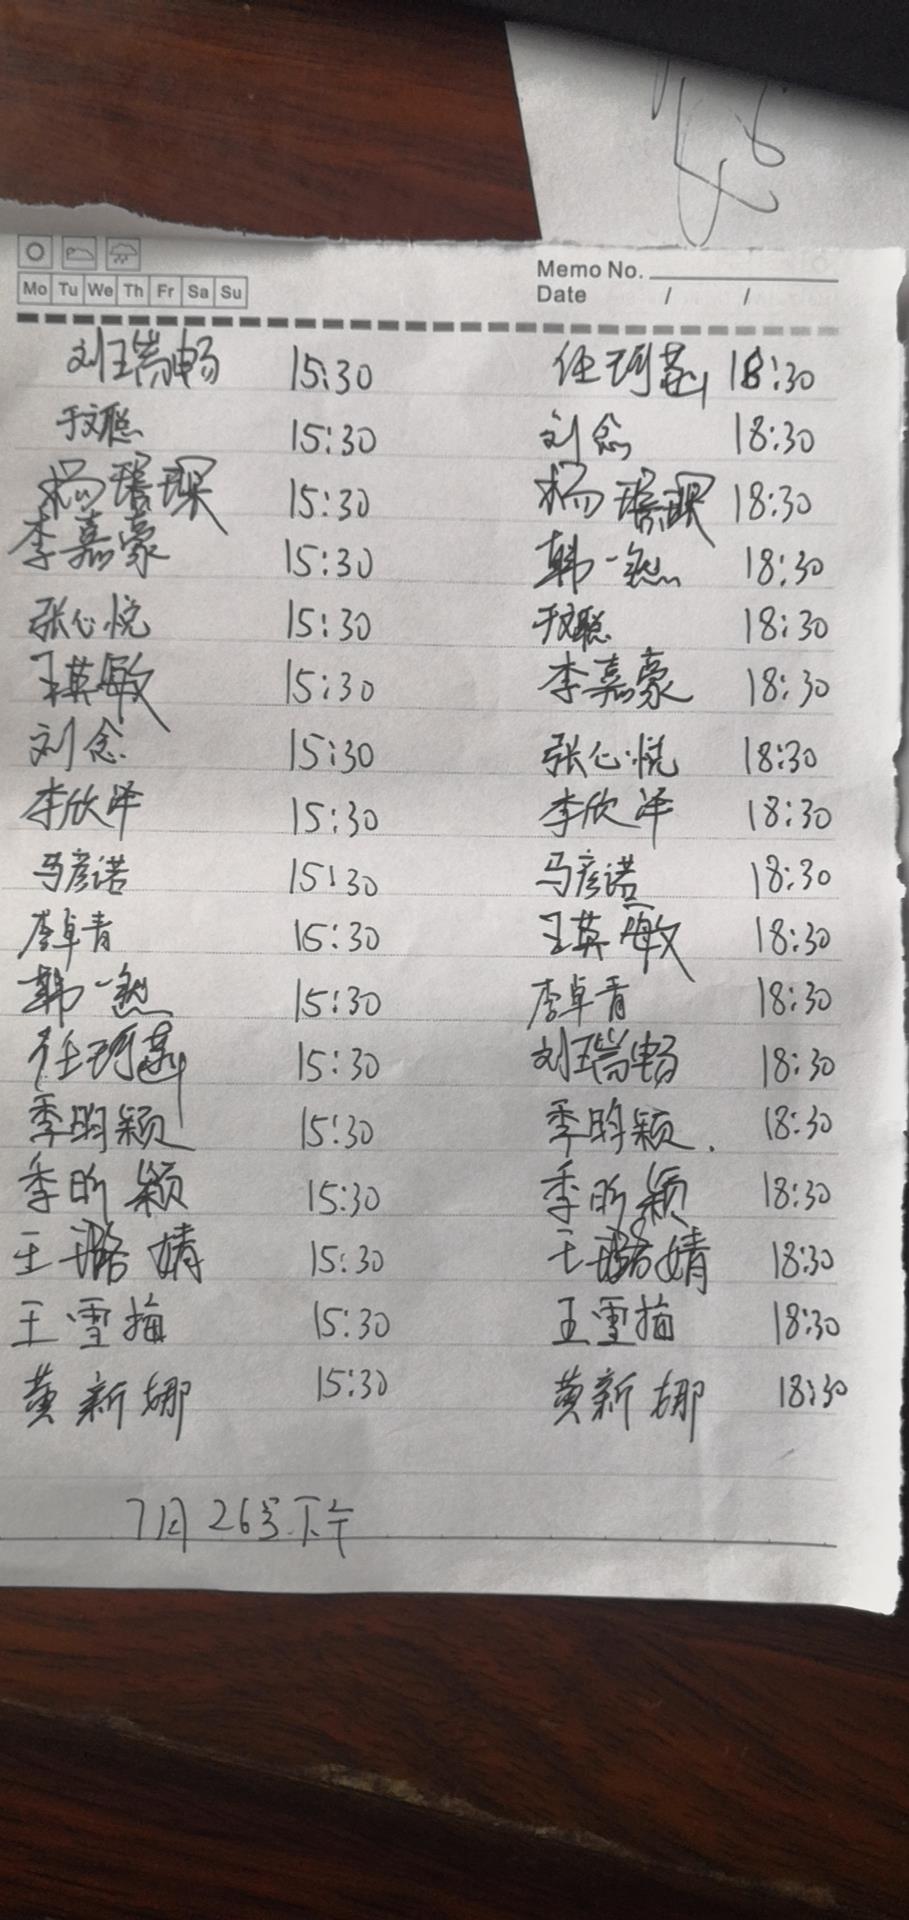 Memo No.
Mo Tu We Th Fr Sa Su
Date / /
刘瑞畅 15:30 任珂 18:30
于文聪 15:30 刘念 18:30
杨瑞琪 15:30 杨瑞琪 18:30
李嘉豪 15:30 韩一然 18:30
张心悦 15:30 于文聪 18:30
王英敏 15:30 李嘉豪 18:30
刘念 15:30 张心悦 18:30
李欣泽 15:30 李欣泽 18:30
马彦诺 15:30 马彦诺 18:30
李卓青 15:30 王英敏 18:30
韩一然 15:30 李卓青 18:30
任珂 15:30 刘瑞畅 18:30
季昀颖 15:30 季昀颖 18:30
季昕颖 15:30 季昕颖 18:30
王璐婧 15:30 王璐婧 18:30
王雪梅 15:30 王雪梅 18:30
黄新娜 15:30 黄新娜 18:30
7月26号下午